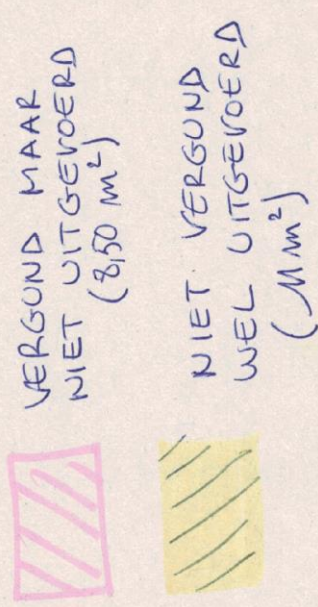 VERGUND MAAR
NIET UITGEVOERD
(8,50 m²)
NIET VERGUND
WEL UITGEVOERD
(11 m²)